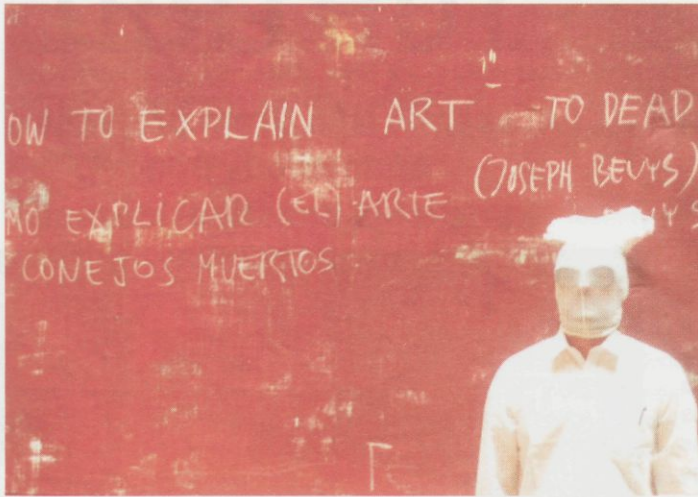 OW TO EXPLAIN ART TO DEAD
(JOSEPH BEUYS)
MO EXPLICAR (EL) ARTE
CONEJOS MUERTOS